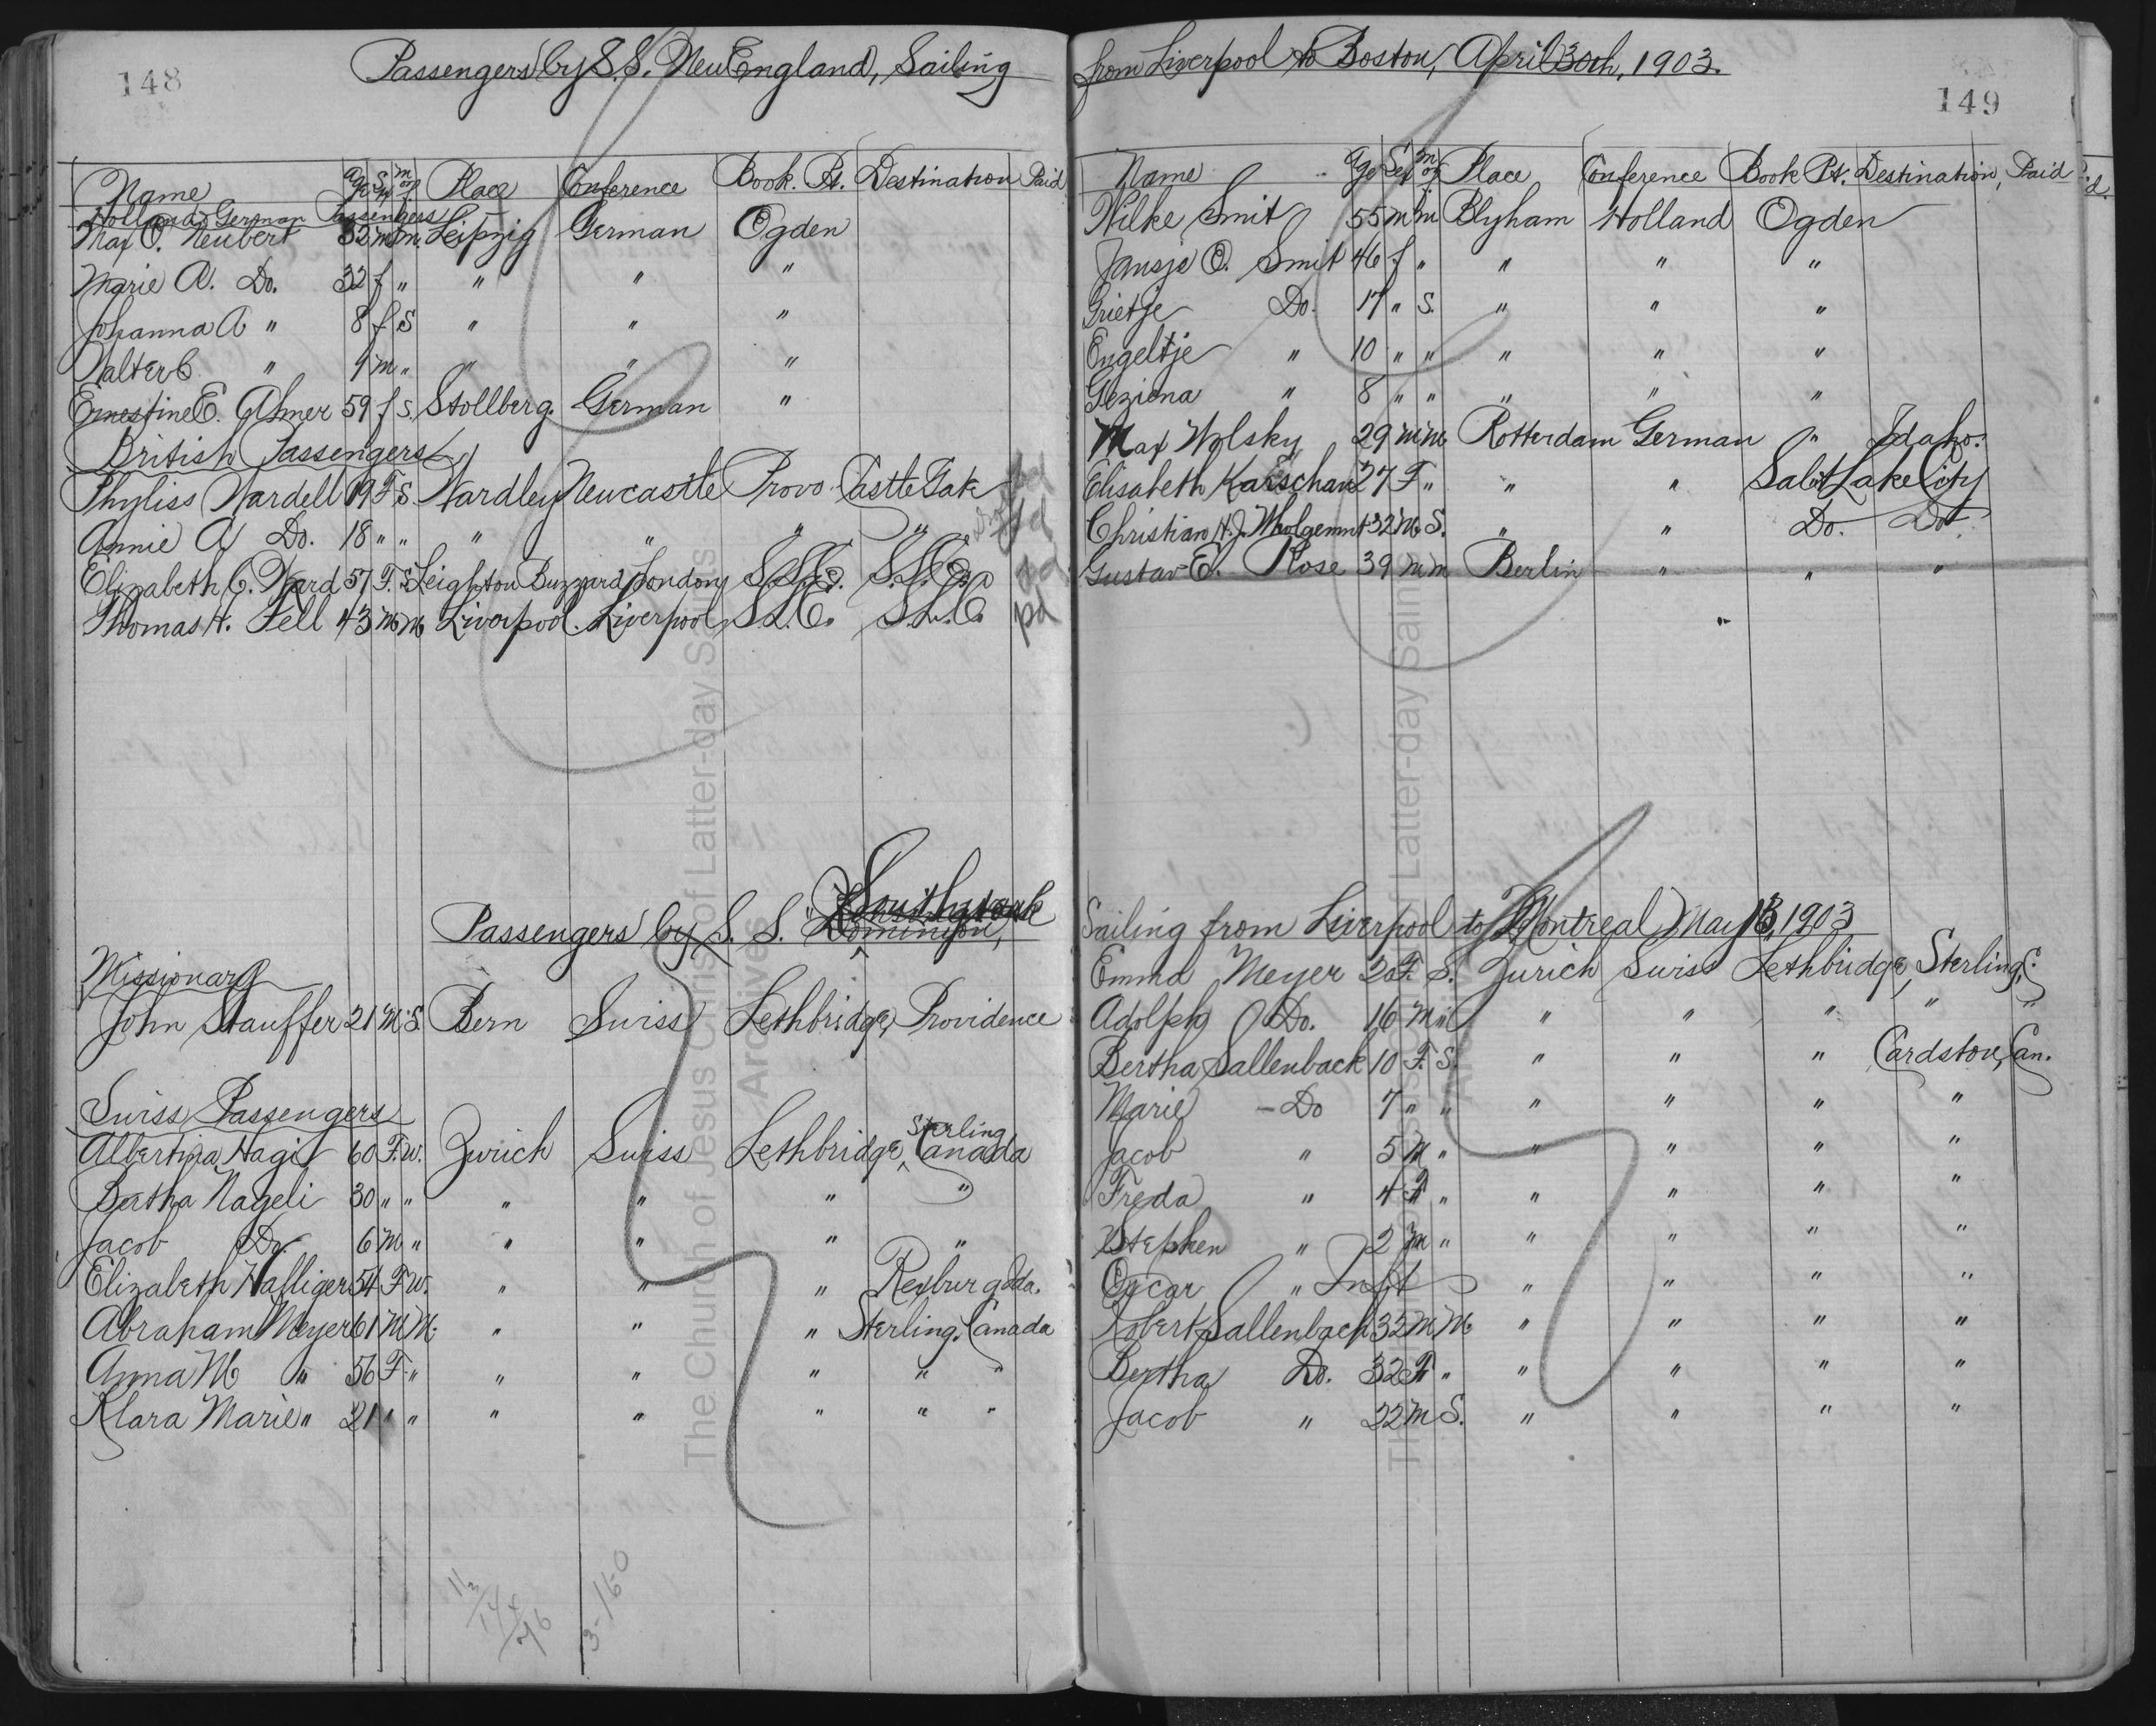 148
Passengers by S.S. New England, Sailing
Name Age Sex m or s Place Conference Book. Pt. Destination Paid
Holland & German Passengers
Max O. Neubert 32 m m Leipzig German Ogden
Marie A. Do. 32 f " " " "
Johanna A " 8 f S " " "
Walter C " 9 m " " " "
Ernestine E. Ahner 59 f S. Stollberg. German "
British Passengers
Phyliss Wardell 19 F S Wardley Newcastle Provo Castle Gate
Annie A Do. 18 " " " " " "
Elizabeth C. Ward 57 F. S Leighton Buzzard London S.L.C. S.L.C. pd
Thomas H. Fell 43 M M Liverpool. Liverpool S.L.C. S.L.C. pd
Passengers by S. S. Dominion, Southwark
Missionary
John Stauffer 21 M. S. Bern Swiss Lethbridge, Providence
Swiss Passengers
Albertina Hagi 60 F. W. Zurich Swiss Lethbridge, Sterling Canada
Bertha Nageli 30 " " " " " "
Jacob Do. 6 M " " " " "
Elizabeth Hafliger 54 F W. " " " Rexburg Ida.
Abraham Meyer 61 M M. " " " Sterling, Canada
Anna M " 56 F " " " " " "
Klara Marie " 21 " " " " " " "
3-16-0
149
from Liverpool to Boston, April 30th, 1903.
Name Age Sex m or s Place Conference Book Pt. Destination, Paid
Wilke Smit 55 m m Blyham Holland Ogden
Jansje O. Smit 46 f " " " "
Grietje Do. 17 " S. " " "
Engeltje " 10 " " " " "
Geziena " 8 " " " " "
Max Wolsky 29 m m Rotterdam German " Idaho.
Elisabeth Karschan 27 F " " " Salt Lake City
Christian H. J. Wholgemut 32 M. S. " " Do. Do
Gustav E. Rose 39 m m Berlin " " "
"
Sailing from Liverpool to Montreal, May 13, 1903
Emma Meyer 20 F. S. Zurich Swiss Lethbridge, Sterling, C.
Adolph Do. 16 M " " " " " "
Bertha Sallenback 10 F. S. " " " Cardston, Can.
Marie - Do 7 " " " " " "
Jacob " 5 M " " " " "
Freda " 4 F " " " " "
Stephen " 2 M " " " " "
Oscar " Inft " " " "
Robert Sallenbach 32 M M " " " "
Bertha Do. 32 F " " " " "
Jacob " 22 M S. " " " "
The Church of Jesus Christ of Latter-day Saints
Archives